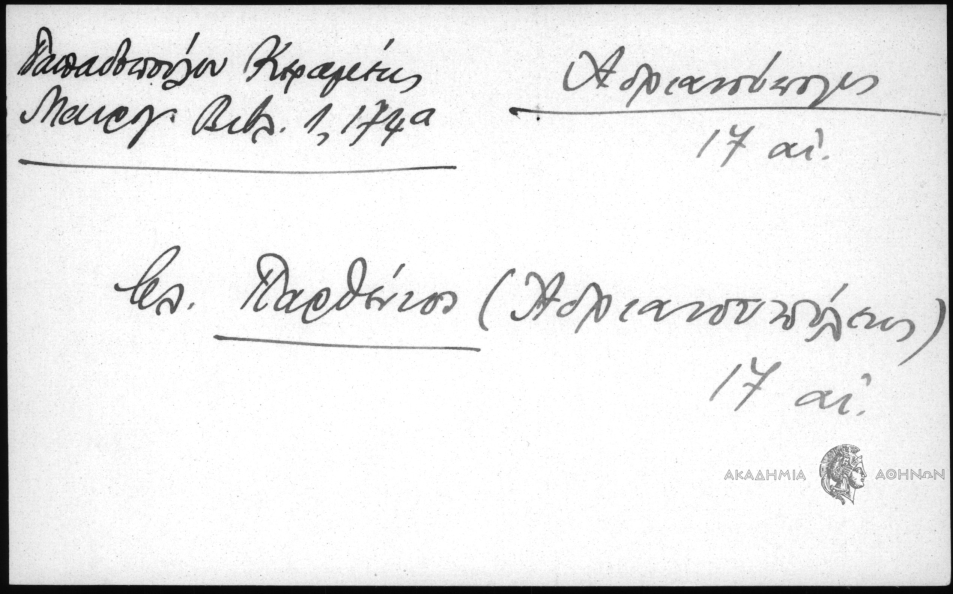 Παπαδοπούλου Κεραμέως
Μαυρογ. Βιβλ. 1, 174α
Ἀδριανούπολις
17 αἰ.
βλ. Παρθένιος (Ἀδριανουπόλεως)
17 αἰ.
ΑΚΑΔΗΜΙΑ ΑΘΗΝΩΝ